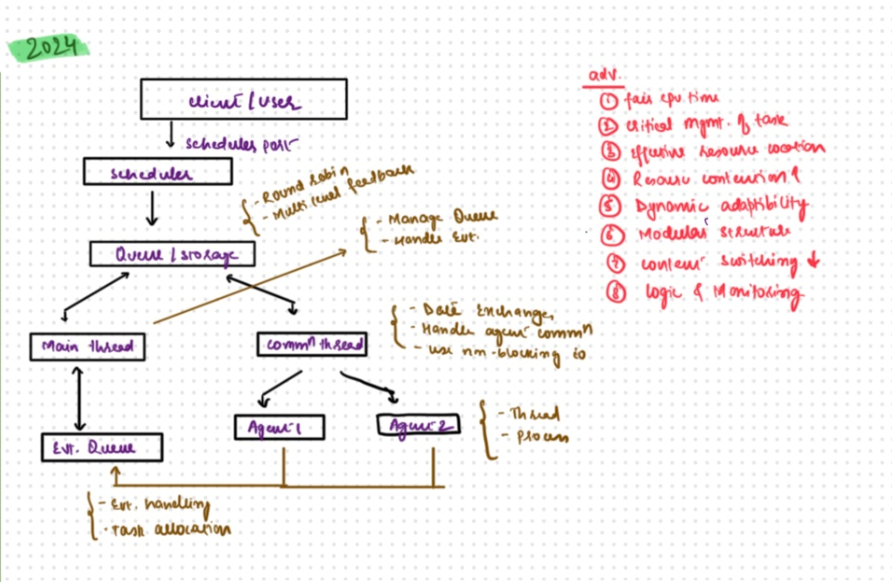 2024
client / user
schedules post
scheduler
- Round robin
- Multi level feedback
Queue / storage
- Manage Queue
- Handle Evt.
Main thread
Commⁿ thread
- Data Exchange,
- Handle agent commⁿ
- use nm-blocking io
Agent 1
Agent 2
- Thread
- Process
Evt. Queue
- Evt. handling
- Task allocation
adv.
① fair cpu time
② critical mgmt. of task
③ effective resource
④ Resource contention
⑤ Dynamic adaptibility
⑥ Modular structure
⑦ context switching ↓
⑧ Logic & Monitoring